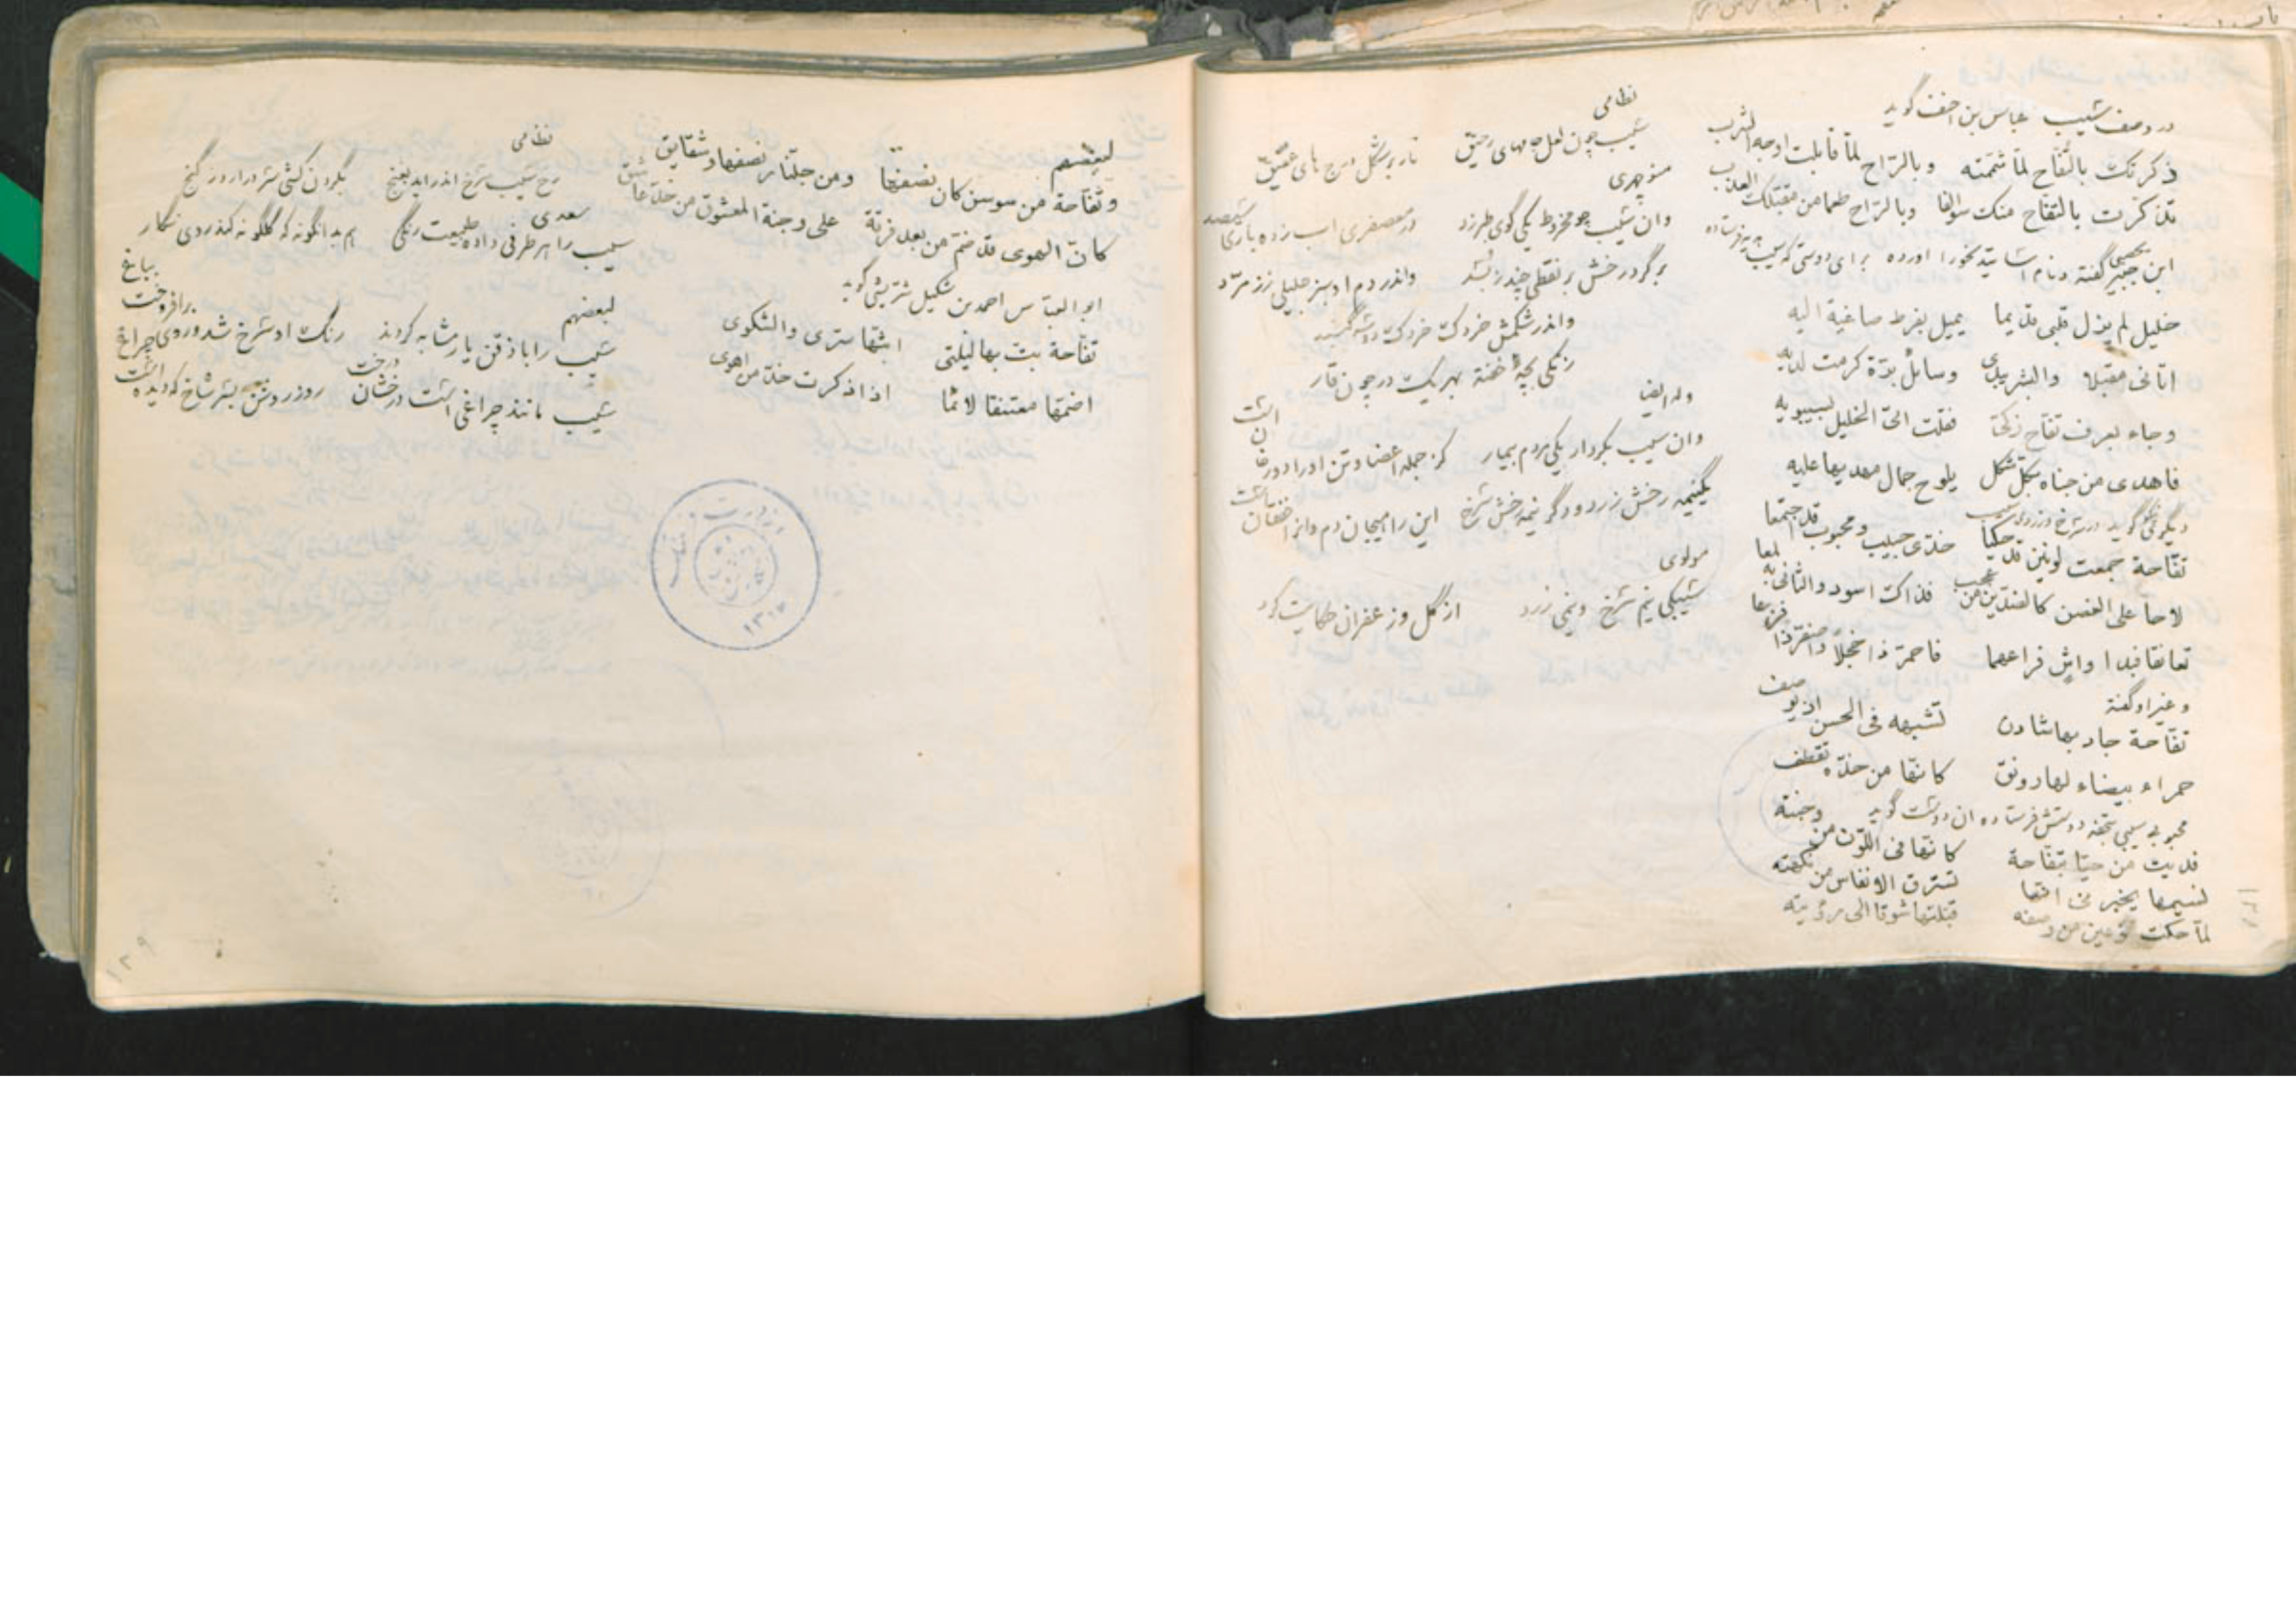 در وصف سیب عباس بن احنف گوید
ذکرتک بالتفاح لما شممته وبالراح لما قابلت اوجه الشرب
تذکرت بالتفاح منک سوالفا وبالراح طعما من مقبلک العذب
ابن جبیر گفته
خلیل لم یزل قلبی قدیما یمیل بفرط صاغیة الیه
اتانی مقبلا والبشر یبدی وسائل برّة کرمت لدیه
وجاء بعرف تفاح زکی فقلت اتی الخلیل لسیبویه
فاهدی من جناه بکل شکل یلوح جمال مهدیها علیه
دیگری گوید در سرخی و زردی سیب
تفاحة جمعت لونین قد حکیا خدی حبیب ومحبوب قد اجتمعا
لاحا علی الغصن کالضدین من عجب فذاک اسود والثانی به لمعا
تعانقا فبدا واش فراعهما فاحمر ذا خجلا واصفر ذا فزعا
و غیر او گفته
تفاحة جاد بها شادن تشبهه فی الحسن اذ یوصف
حمراء بیضاء لها رونق کانها من خده تقطف
محبوبی سیبی بتحفه دوستش فرستاده ان دوست گوید
فدیت من حیا بتفاحة کانها فی اللون من وجنته
نسیمها یخبر عن انها تسترق الانفاس من نکهته
لما حکت نوعین من وصفه قبلتها شوقا الی رؤیته
نظامی
سیب چون لعل جامهای رحیق نار بر شکل درج های عقیق
منوچهری
وان سیب چو مخروط یکی گوی طبرزد در معصفری اب زده باری سیصد
بر گرد رخش بر نقطی چند ز بسد واندر دم او سبز جلیلی ز زمرد
واندر شکمش خردک خردک دو سه گنبد
زنگی بچهٔ خفته بهر یک در چون قار
وله ایضا
وان سیب بکردار یکی مردم بیمار کز جمله اعضا و تن او را دو رخانست
یکنیمه رخش زرد و دگر نیمه رخش سرخ این را هیجان دم و انرا خفقانست
مولوی
سیبکی نیم سرخ و نیمی زرد از گل و زعفران حکایت کرد
لبعضهم
وتفاحة من سوسن کان نصفها ومن جلنار نصفها وشقایق
کان الهوی قد ضم من بعد فرقة علی وجنة المعشوق من خد عاشق
ابو العباس احمد بن شکیل شریشی گوید
تفاحة بت بها لیلتی ابثها سری والشکوی
اضمها معتنقا لاثما اذ اذکرت خد من اهوی
نظامی
رخ سیب سرخ اندر اید بغنج بگردن کشی سر درارد ز گنج
سعدی
سیب را هر طرفی داده طبیعت رنگی هم بدانگونه که گلگونه کند روی نگار
لبعضهم
سیب را با ذقن یار مشابه کردند رنگ او سرخ شد و روی برافروخت بباغ
سیب مانند چراغی است درخشان ز درخت روز روشن بسر شاخ که دیده است چراغ
وزارت
۱۳۱۷